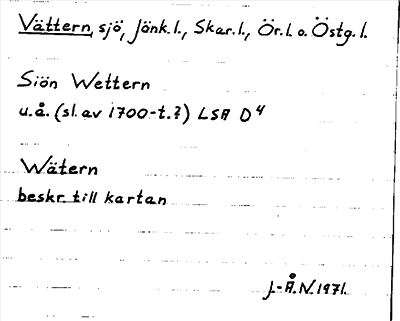 Vättern, sjö, Jönk. l., Skar. l., Ör. l. o. Östg. l.
Siön Wettern
u.å. (sl. av 1700-t.?) LSA D4
Wätern
beskr. till kartan
J.-Å.N. 1971.